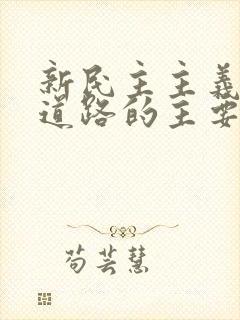 新民主主義
道路的主要
苟芸慧